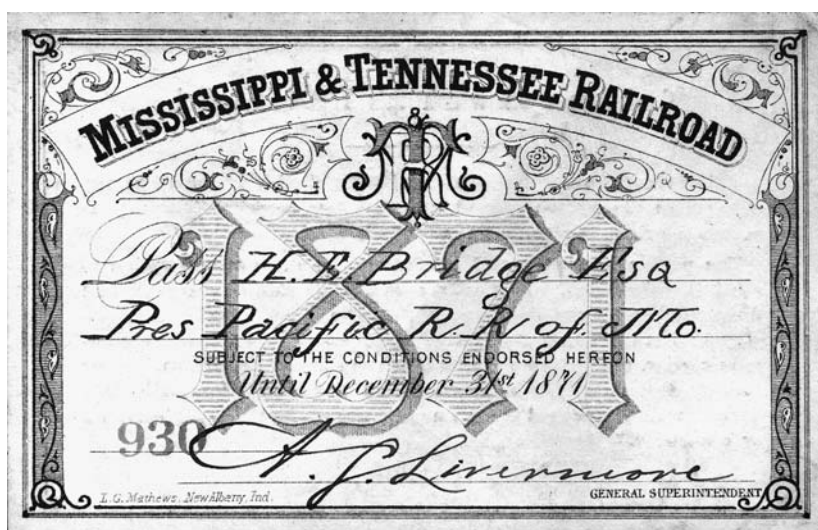 MISSISSIPPI & TENNESSEE RAILROAD
1871
Pass H. E. Bridge Esq
Pres Pacific R. R. of Mo.
SUBJECT TO THE CONDITIONS ENDORSED HEREON
Until December 31st 1871
930
A. J. Livermore
L. G. Mathews, New Albany, Ind.
GENERAL SUPERINTENDENT